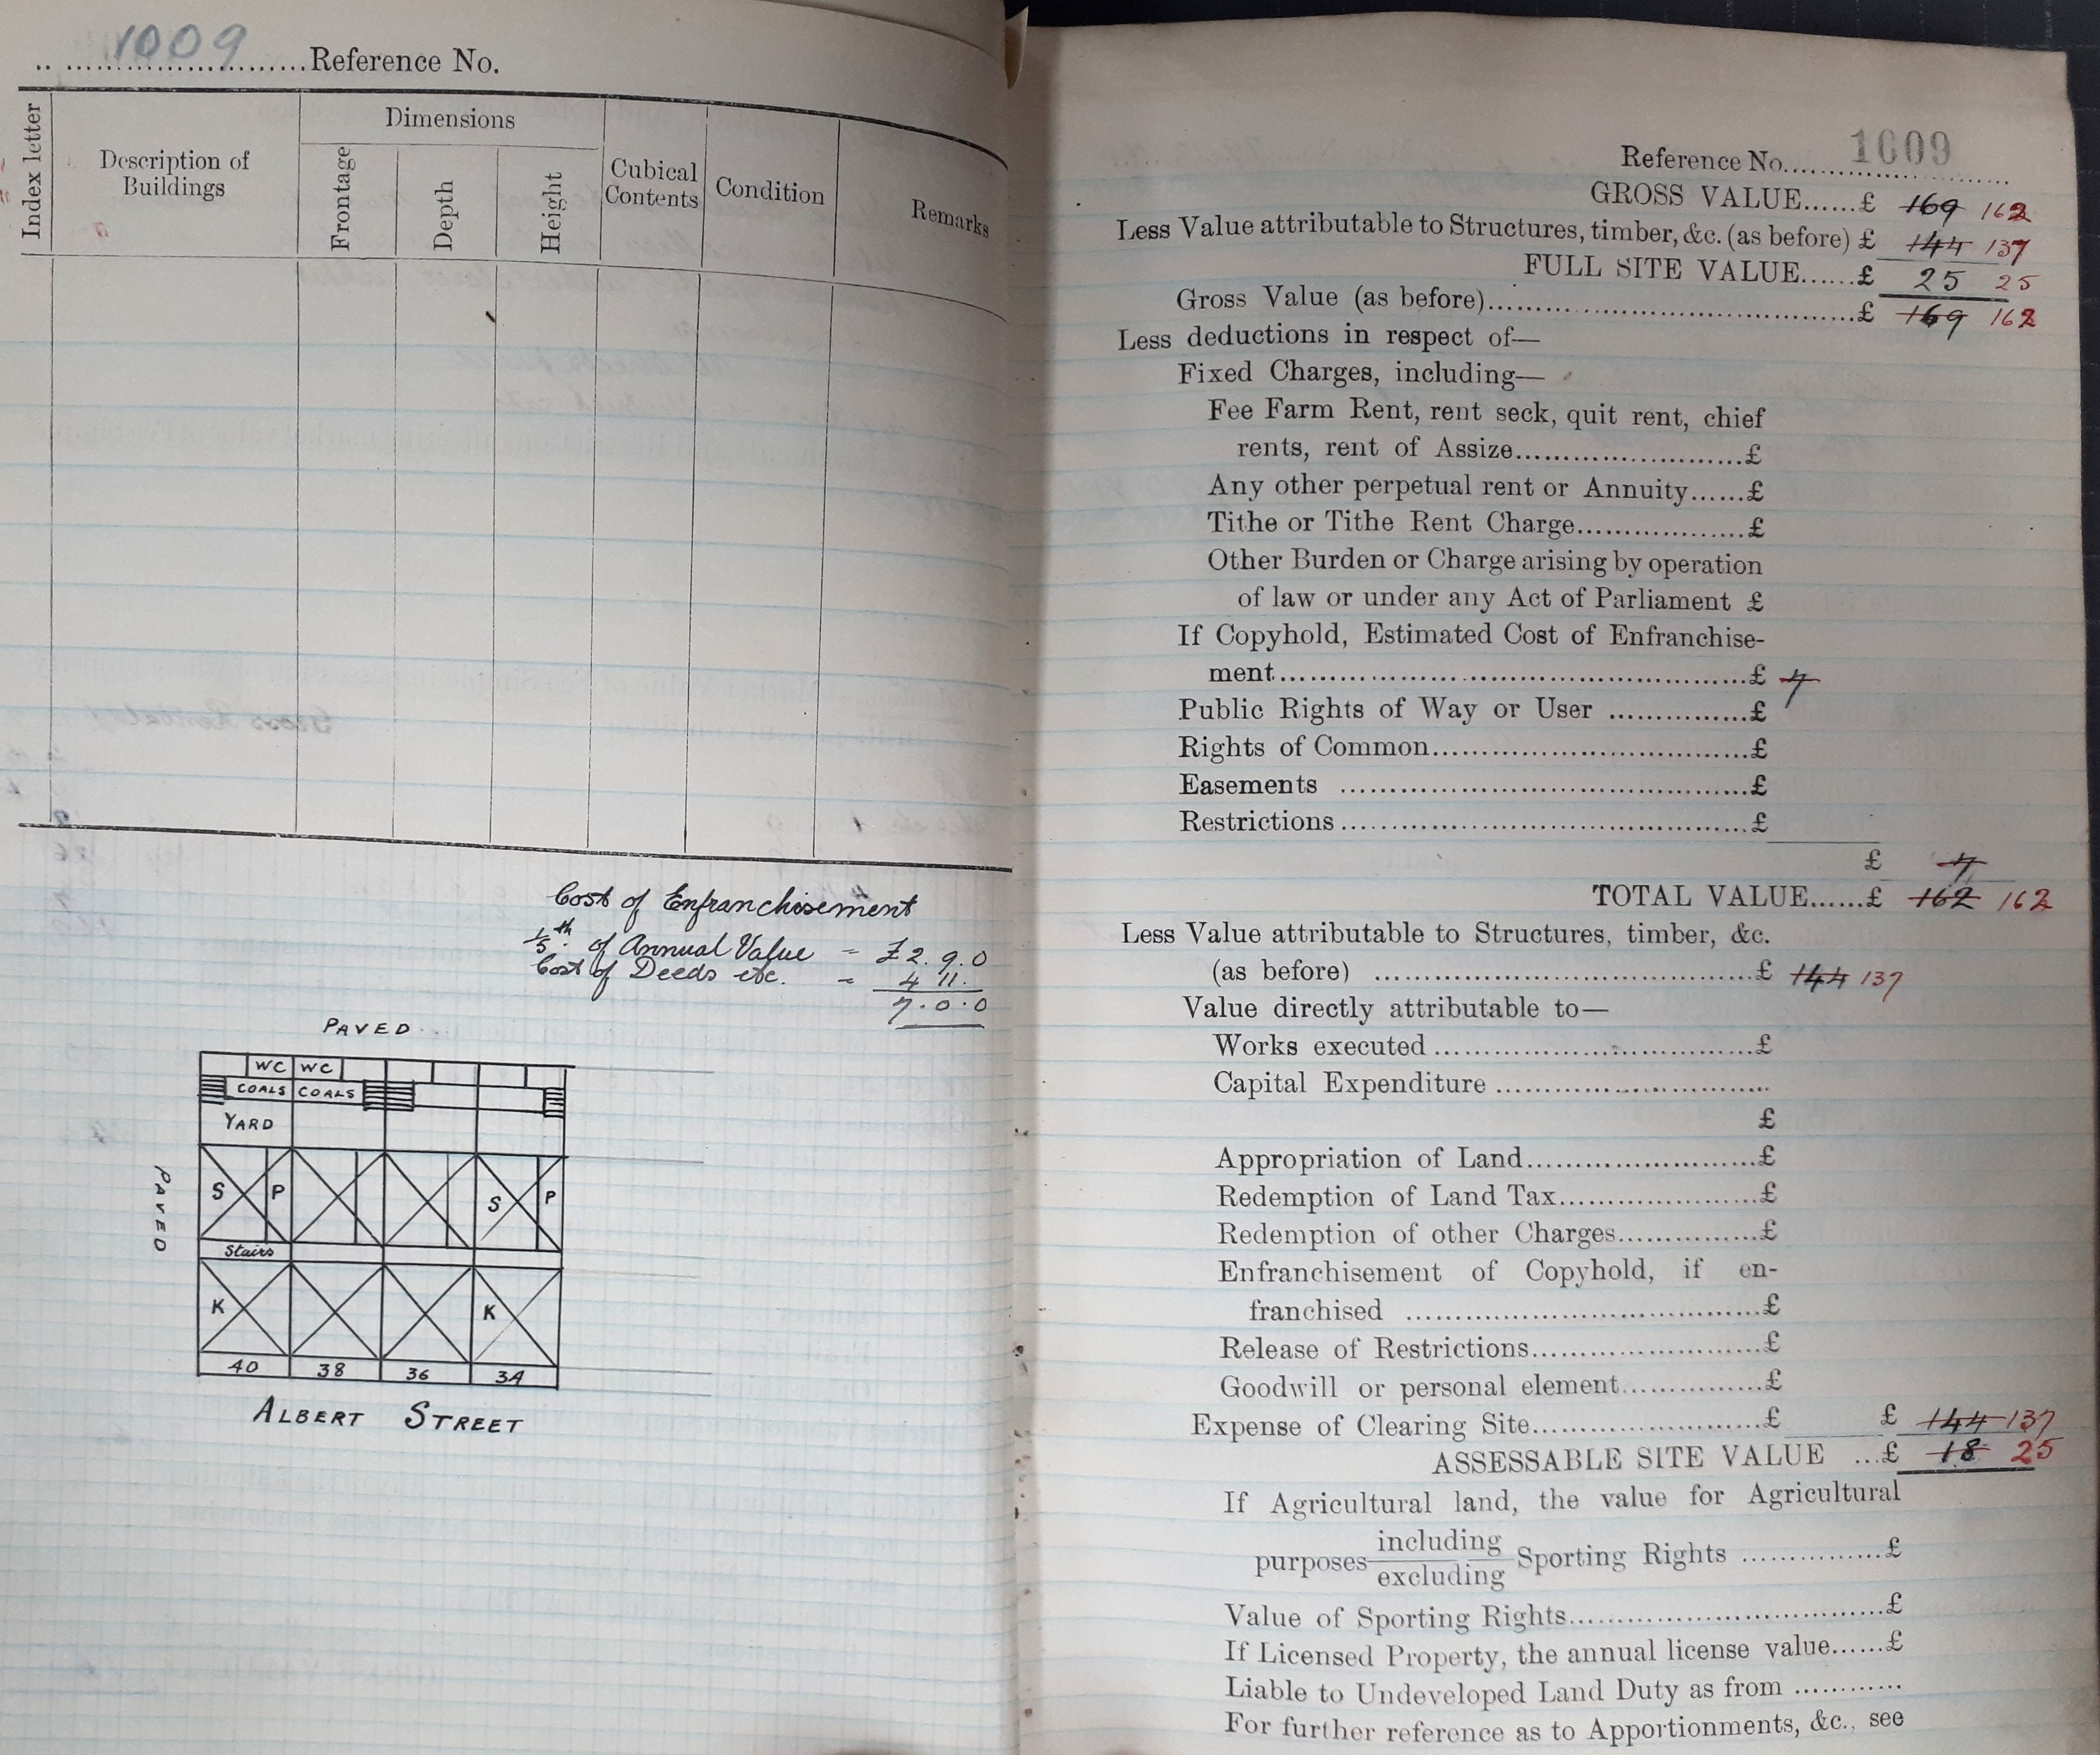 1009 Reference No.
Index letter
Description of Buildings
Dimensions
Frontage
Depth
Height
Cubical Contents
Condition
Remarks
Cost of Enfranchisement
1/5th. of Annual Value - £2.9.0
Cost of Deeds etc. - 4 11.
7.0.0
PAVED
WC WC
COALS COALS
YARD
PAVED
S P S P
Stairs
K K
40 38 36 34
ALBERT STREET
Reference No. 1009
GROSS VALUE......£ 169 162
Less Value attributable to Structures, timber, &c. (as before) £ 144 137
FULL SITE VALUE......£ 25 25
Gross Value (as before)......£ 169 162
Less deductions in respect of—
Fixed Charges, including—
Fee Farm Rent, rent seck, quit rent, chief
rents, rent of Assize......£
Any other perpetual rent or Annuity......£
Tithe or Tithe Rent Charge......£
Other Burden or Charge arising by operation
of law or under any Act of Parliament £
If Copyhold, Estimated Cost of Enfranchise-
ment......£ 7
Public Rights of Way or User ......£
Rights of Common......£
Easements ......£
Restrictions......£
£ 7
TOTAL VALUE......£ 162 162
Less Value attributable to Structures, timber, &c.
(as before) ......£ 144 137
Value directly attributable to—
Works executed......£
Capital Expenditure ......
£
Appropriation of Land......£
Redemption of Land Tax......£
Redemption of other Charges......£
Enfranchisement of Copyhold, if en-
franchised ......£
Release of Restrictions......£
Goodwill or personal element......£
Expense of Clearing Site......£ £ 144 137
ASSESSABLE SITE VALUE ...£ 18 25
If Agricultural land, the value for Agricultural
purposes including excluding Sporting Rights ......£
Value of Sporting Rights......£
If Licensed Property, the annual license value......£
Liable to Undeveloped Land Duty as from ......
For further reference as to Apportionments, &c., see